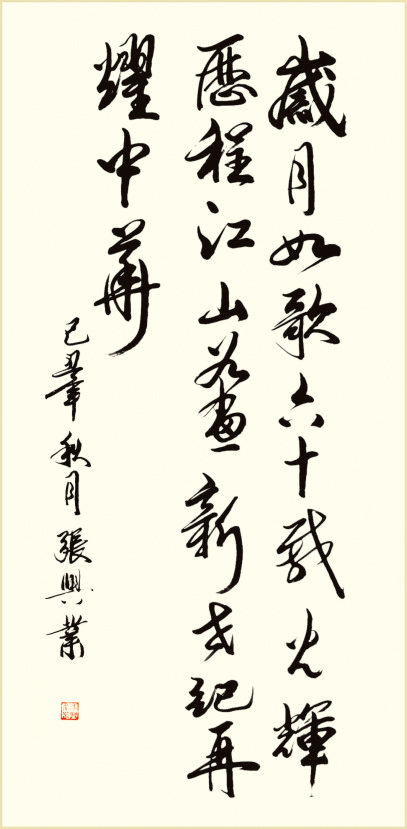 歲月如歌六十載光輝
歷程江山若畫新世紀再
耀中華
己丑年秋月張興業